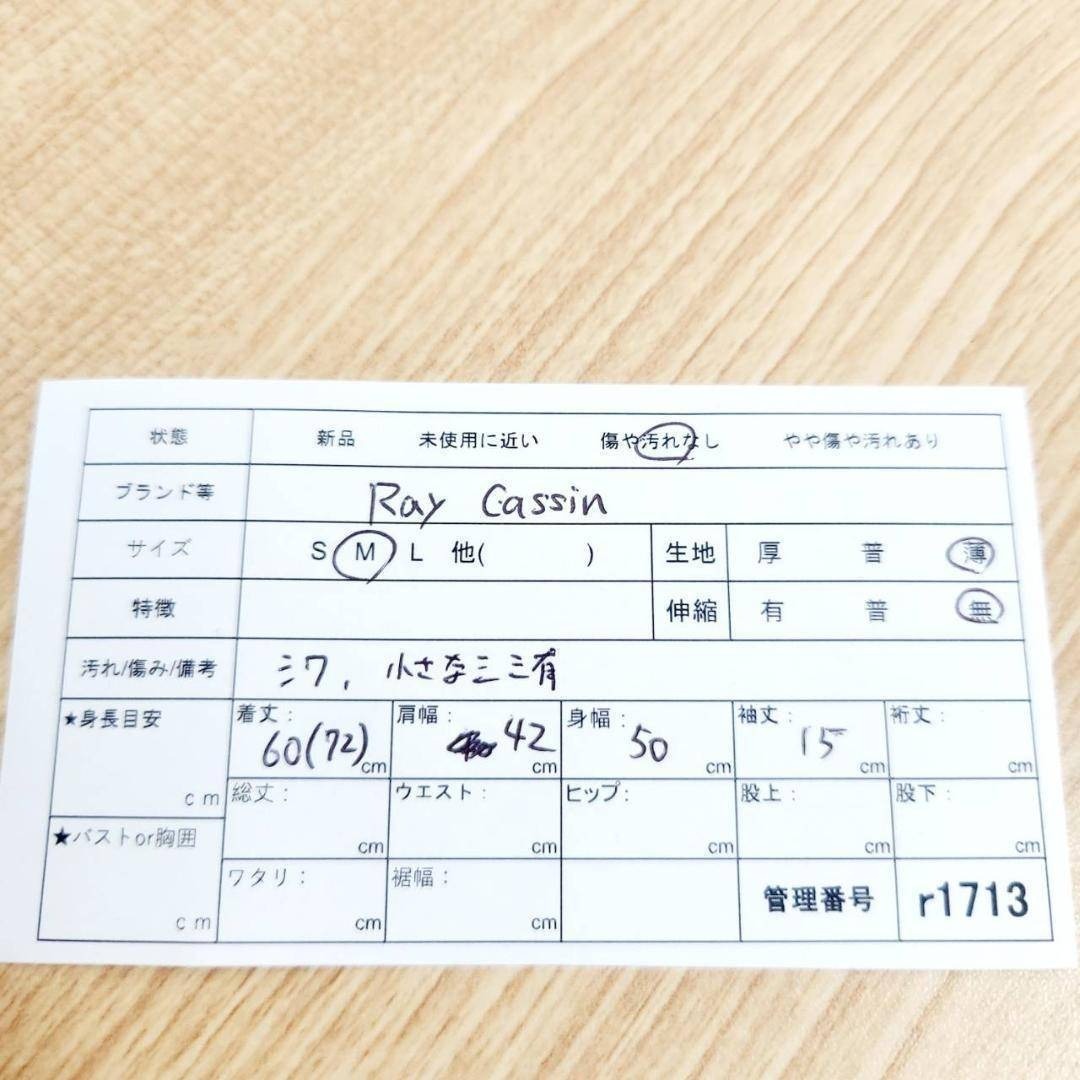 状態 新品 未使用に近い 傷や汚れなし やや傷や汚れあり
ブランド等 Ray Cassin
サイズ S M L 他( ) 生地 厚 普 薄
特徴 伸縮 有 普 無
汚れ/傷み/備考 シワ, 小さなシミ有
★身長目安 cm 着丈: 60(72) cm 肩幅: 42 cm 身幅: 50 cm 袖丈: 15 cm 裄丈: cm
総丈: cm ウエスト: cm ヒップ: cm 股上: cm 股下: cm
★バストor胸囲 cm ワタリ: cm 裾幅: cm 管理番号 r1713